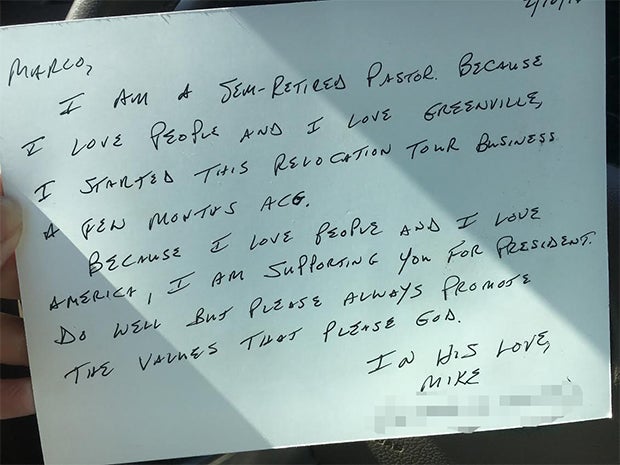 MARCO,
I AM A SEM-RETIRED PASTOR. BECAUSE
I LOVE PEOPLE AND I LOVE GREENVILLE,
I STARTED THIS RELOCATION TOUR BUSINESS
A FEW MONTHS AGO.
BECAUSE I LOVE PEOPLE AND I LOVE
AMERICA, I AM SUPPORTING YOU FOR PRESIDENT.
DO WELL BUT PLEASE ALWAYS PROMOTE
THE VALUES THAT PLEASE GOD.
IN HIS LOVE,
MIKE